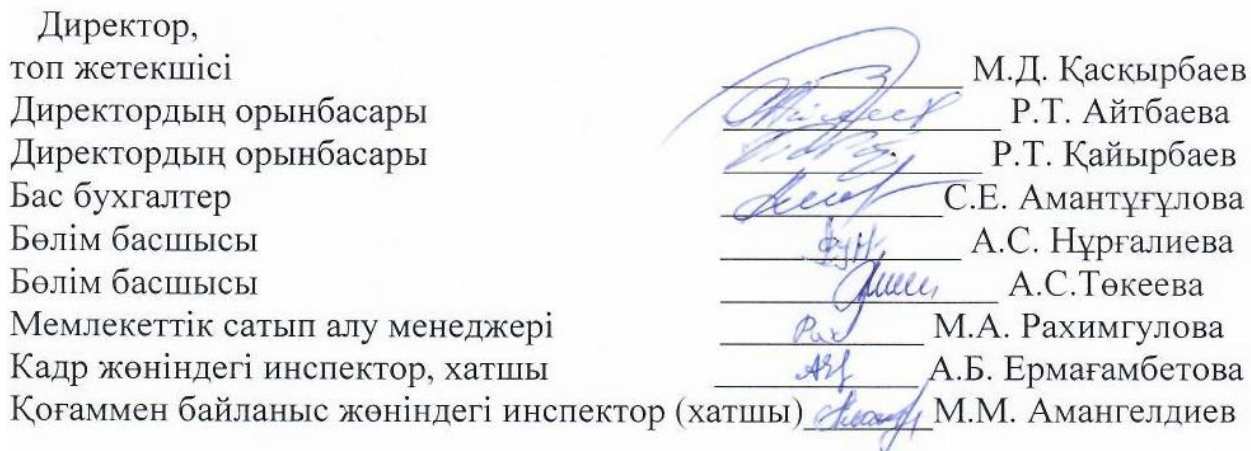 Директор,
топ жетекшісі М.Д. Қасқырбаев
Директордың орынбасары Р.Т. Айтбаева
Директордың орынбасары Р.Т. Қайырбаев
Бас бухгалтер С.Е. Амантұғұлова
Бөлім басшысы А.С. Нұрғалиева
Бөлім басшысы А.С.Төкеева
Мемлекеттік сатып алу менеджері М.А. Рахимгулова
Кадр жөніндегі инспектор, хатшы А.Б. Ермағамбетова
Қоғаммен байланыс жөніндегі инспектор (хатшы) М.М. Амангелдиев